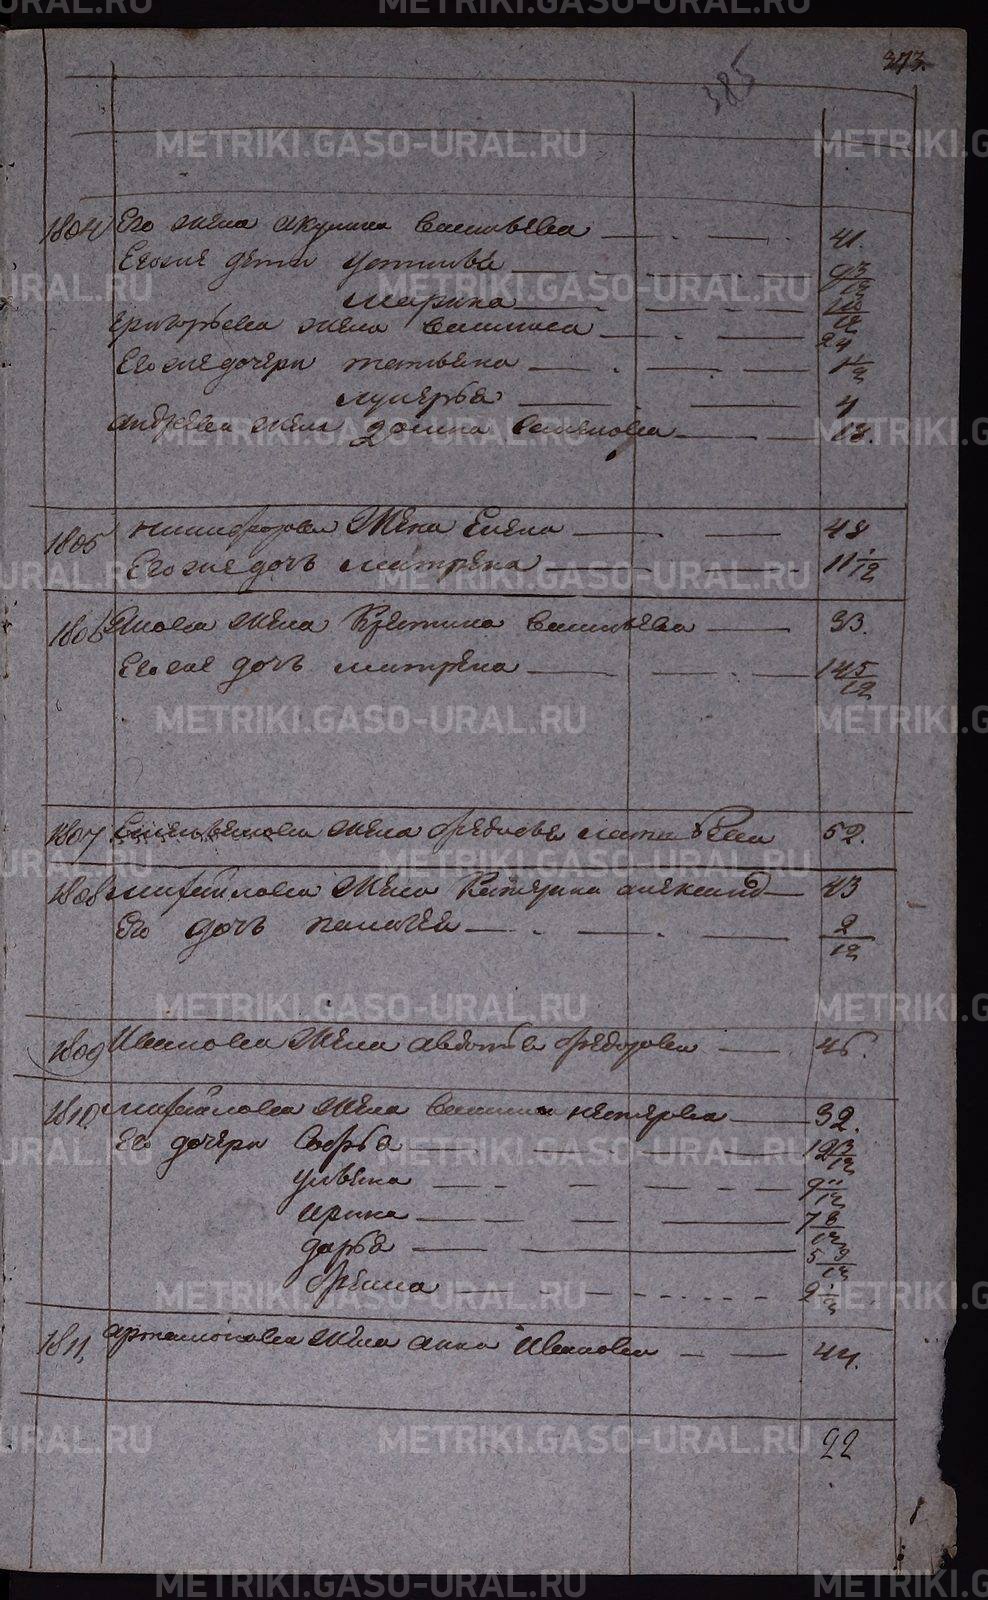 373.
385
1804 Его жена Акулина Васильева — 41.
Его же дети Устинья — 9 3/12
Марина — 10/12
Григорьева жена Василиса — 24
Его же дочери Татьяна — 1/2
Лукерья — 4
Андреева жена Домна Семенова — 18.
1805 Никифорова жена Елена — 48
Его же дочь Матрена — 11 1/12
1806 жена Кретина Васильева — 33.
Его же дочь Матрена — 14 5/12
1807 жена Федосья Матвеева 52.
1808 Михайлова жена Катерина Александ — 43
Его дочь Палагея — 2/12
1809 Иванова жена Авдотья Федорова — 46.
1810 Михайлова жена Василиса Нестерова — 32.
Его дочери Софья — 12 3/12
Ульяна — 9 11/12
Ирина — 7 8/12
Дарья — 5 9/12
Фекла — 2 1/12
1811, Артамонова жена Анна Иванова — 44.
22
METRIKI.GASO-URAL.RU